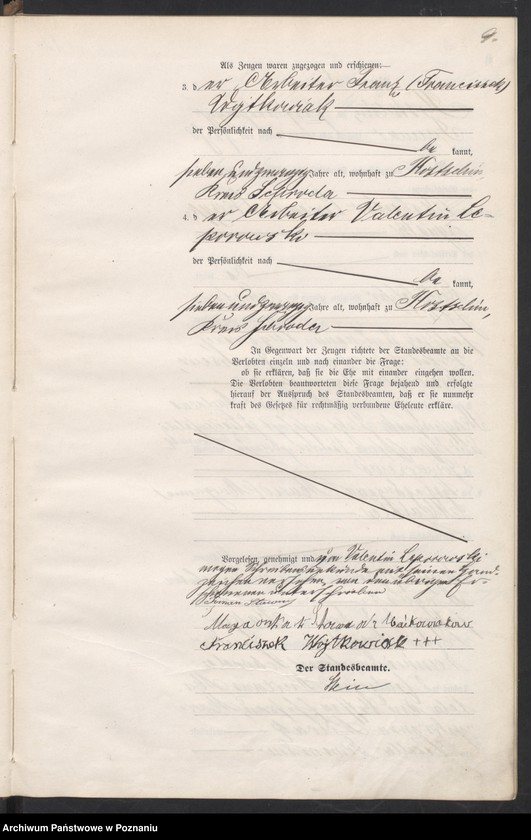 9.
Als Zeugen waren zugezogen und erschienen:
3. der Arbeiter Franz (Franciszek)
Wojtkowiak
der Persönlichkeit nach
be kannt,
sieben und zwanzig Jahre alt, wohnhaft zu Kostschin
Kreis Schroda
4. der Arbeiter Valentin Le-
porowski
der Persönlichkeit nach
be kannt,
sieben und zwanzig Jahre alt, wohnhaft zu Kostschin,
Kreis Schroda
In Gegenwart der Zeugen richtete der Standesbeamte an die
Verlobten einzeln und nach einander die Frage:
ob sie erklären, daß sie die Ehe mit einander eingehen wollen.
Die Verlobten beantworteten diese Frage bejahend und erfolgte
hierauf der Ausspruch des Standesbeamten, daß er sie nunmehr
kraft des Gesetzes für rechtmäßig verbundene Eheleute erkläre.
Vorgelesen, genehmigt und von Valentin Leporowski
wegen Schreibensunkunde mit seinem Hand-
zeichen versehen, von den übrigen Er-
schienenen unterschrieben
Franciszek Wojtkowiak +++
Der Standesbeamte.
Archiwum Państwowe w Poznaniu